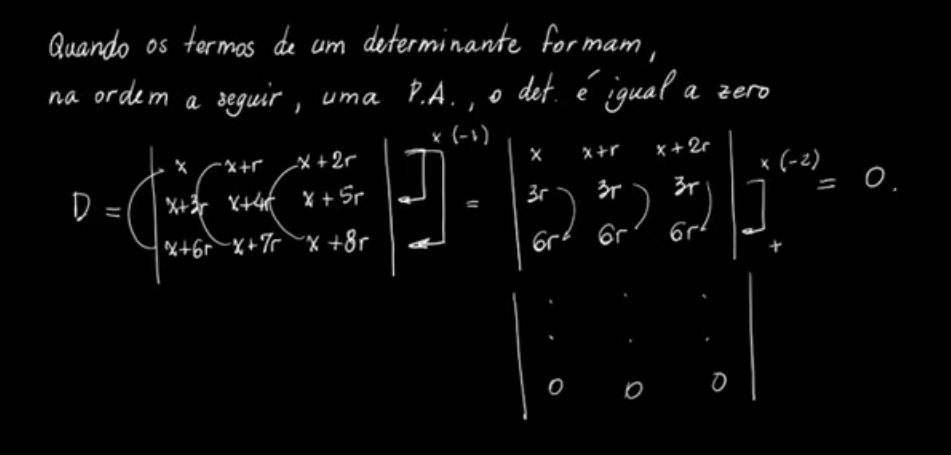 Quando os termos de um determinante formam,
na ordem a seguir, uma P.A., o det. é igual a zero
D = | x x+r x+2r | x (-1) | x x+r x+2r | x (-2)
| x+3r x+4r x+5r | = | 3r 3r 3r | = 0.
| x+6r x+7r x+8r | | 6r 6r 6r | +
| . . . |
| . . . |
| 0 0 0 |